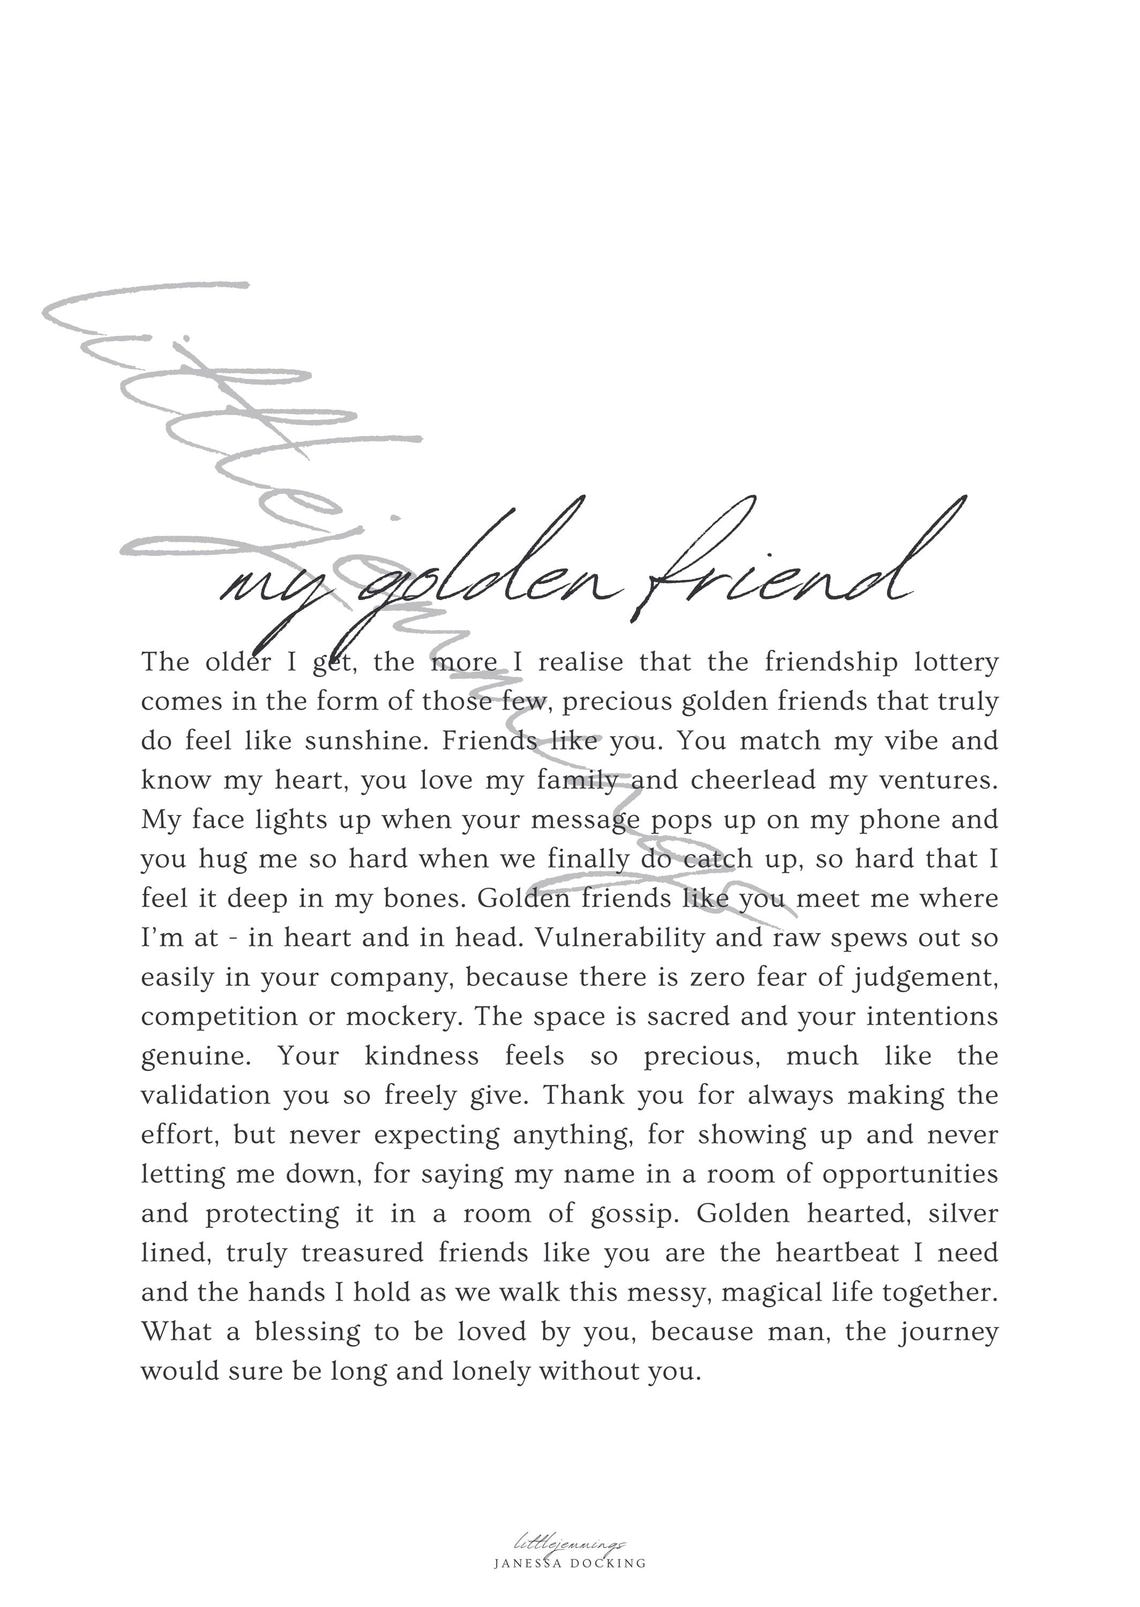 littlejennings
my golden friend
The older I get, the more I realise that the friendship lottery
comes in the form of those few, precious golden friends that truly
do feel like sunshine. Friends like you. You match my vibe and
know my heart, you love my family and cheerlead my ventures.
My face lights up when your message pops up on my phone and
you hug me so hard when we finally do catch up, so hard that I
feel it deep in my bones. Golden friends like you meet me where
I'm at - in heart and in head. Vulnerability and raw spews out so
easily in your company, because there is zero fear of judgement,
competition or mockery. The space is sacred and your intentions
genuine. Your kindness feels so precious, much like the
validation you so freely give. Thank you for always making the
effort, but never expecting anything, for showing up and never
letting me down, for saying my name in a room of opportunities
and protecting it in a room of gossip. Golden hearted, silver
lined, truly treasured friends like you are the heartbeat I need
and the hands I hold as we walk this messy, magical life together.
What a blessing to be loved by you, because man, the journey
would sure be long and lonely without you.
littlejennings
JANESSA DOCKING